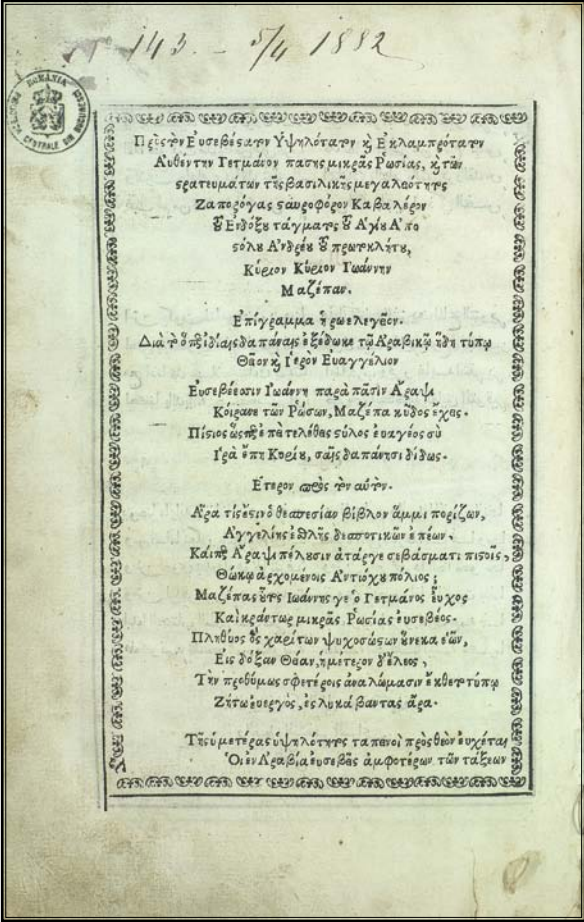 Nº 143 – 5/4 1882
ROMANIA
Πρὸς τὸν Εὐσεβέϛατον Ὑψηλότατον ϗ Ἐκλαμπρότατον
Αὐθέντην Γετμάνον πασης μικρᾶς Ῥωσίας, ϗ τῶν
ϛρατευμάτων τῆς βασιλικῆς μεγαλειότητος
Ζαπορόγας ϛαυροφόρον Καβαλέρον
τȣ͂ Ἐνδόξȣ τάγματος τȣ͂ Ἁγίȣ Ἀπο
ϛόλȣ Ἀνδρέȣ τȣ͂ πρωτοκλήτȣ,
Κύριον Κύριον Ἰωάννην
Μαζέπαν.
Ἐπίγραμμα ἡρωελεγεῖον.
Διὰ τὸ ὅτι ἰδίαις δαπάναις ἐξέδωκε τῷ Ἀραβικῷ ἤδη τύπῳ
Θεῖον ϗ Ἱερὸν Ευαγγέλιον
Εὐσεβέεσσιν Ἰωάννη παρὰ πᾶσιν Ἄραψι
Κοίρανε τῶν Ῥώσων, Μαζέπα κῦδος ἔχεις.
Πίϛιος ὥς τις ἐπεὶ τελέθεις ϛύλος εὐαγέος σὺ
Ἱρὰ ἔπη Κυρίȣ, σαῖς δαπάνησι δίδως.
Ἕτερον πρὸς τὸν αὐτόν.
Ἆρα τίς ἐϛιν ὁ θεσπεσίαν βίβλον ἄμμι πορίζων,
Ἀγγελίης ἐσθλῆς δεσποτικῶν ἐπέων.
Καί τις Ἄραψι πέλȣσιν ἀτάργε σεβάσματι πιϛοῖς,
Θώκῳ ἀρχομένοις Ἀντιόχȣ πόλιος;
Μαζέπας ȣ͗τος Ἰωάννης γε ὁ Γετμάνος εὖχος
Καὶ κράντωρ μικρᾶς Ῥωσίας εὐσεβέος.
Πληθύος ὃς χαρίτων ψυχοσώσων ȣ͕νεκα ἑῶν,
Εἰς δόξαν Θείαν, ἡμέτερον δ' ἔλεος,
Τὴν προθύμως σφετέροις ἀναλώμασιν ἔκθετο τύπῳ
Ζήτω εὐεργὸς, ἐς λυκάβαντας ἄρα.
Τῆς ὑμετέρας ὑψηλότητος ταπεινοὶ πρὸς θεὸν εὐχέται
Οἱ ἐν Ἀραβίᾳ εὐσεβεῖς ἀμφοτέρων τῶν τάξεων